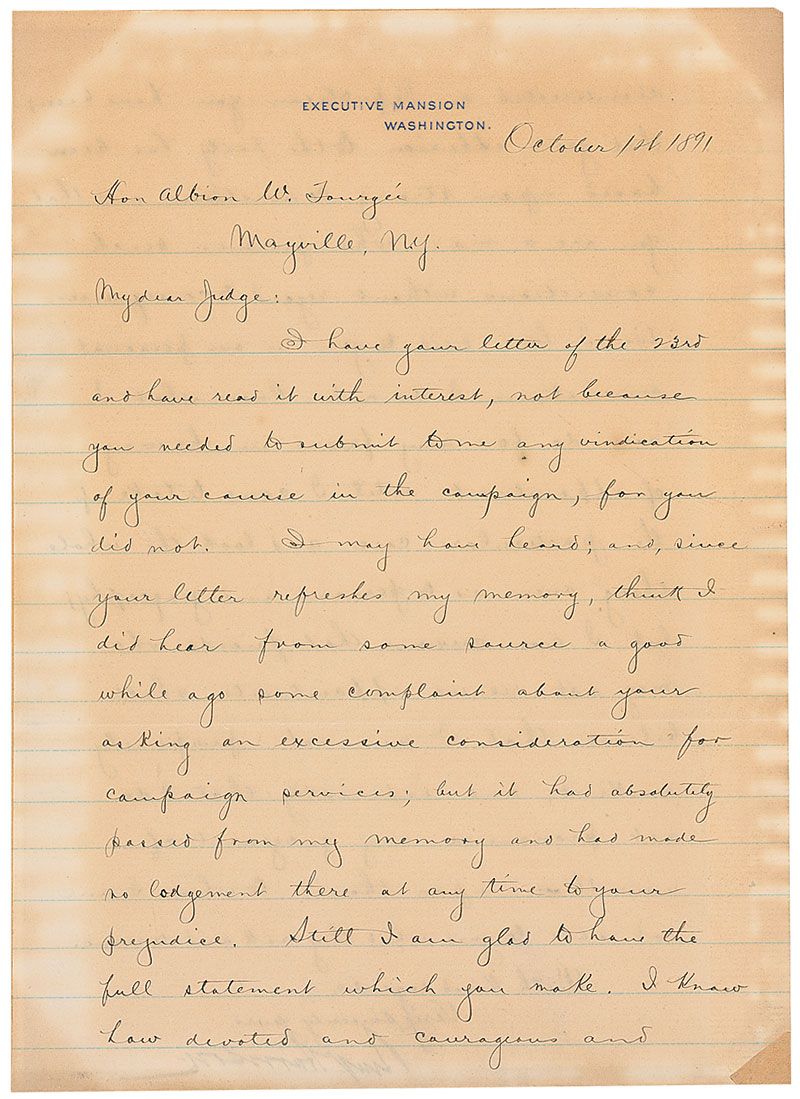 EXECUTIVE MANSION
WASHINGTON.
October 1st 1891
Hon Albion W. Tourgée
Mayville, N.Y.
My dear Judge:
I have your letter of the 23rd
and have read it with interest, not because
you needed to submit to me any vindication
of your course in the campaign, for you
did not. I may have heard; and, since
your letter refreshes my memory, think I
did hear from some source a good
while ago some complaint about your
asking an excessive consideration for
campaign services; but it had absolutely
passed from my memory and had made
no lodgement there at any time to your
prejudice. Still I am glad to have the
full statement which you make. I know
how devoted and courageous and